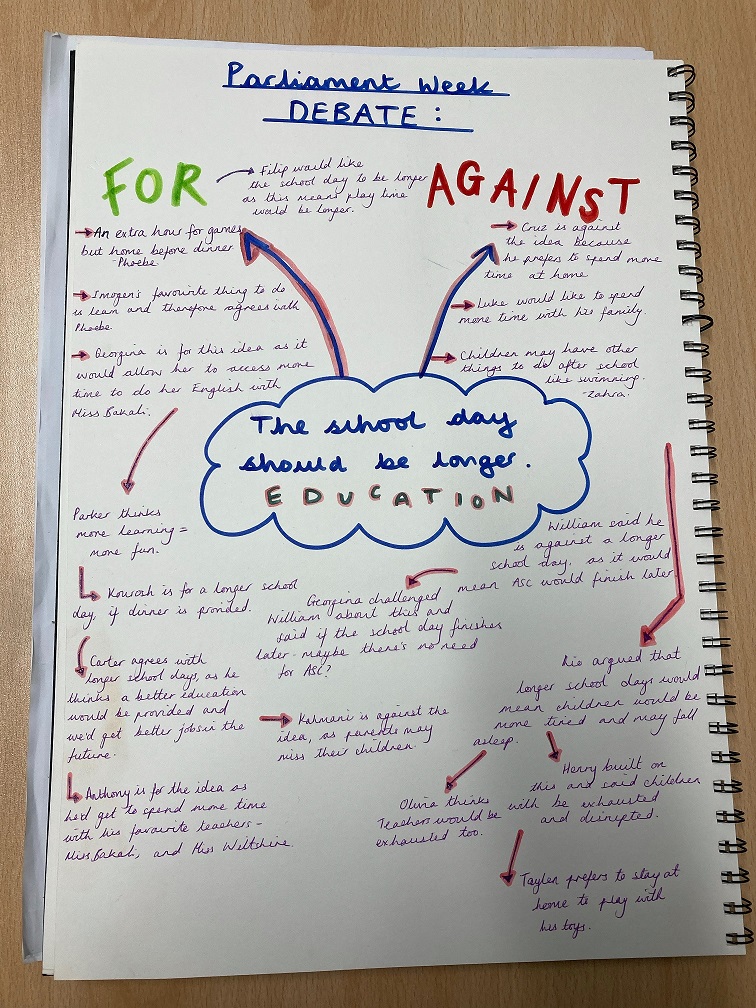 Parliament Week
DEBATE :
FOR
Filip would like
the school day to be longer
as this means play time
would be longer.
AGAINST
An extra hour for games
but home before dinner
- Phoebe.
Imogen's favourite thing to do
is learn and therefore agrees with
Phoebe.
Georgina is for this idea as it
would allow her to access more
time to do her English with
Miss Bakali.
Cruz is against
the idea because
he prefers to spend more
time at home.
Luke would like to spend
more time with his family.
Children may have other
things to do after school
like swimming.
- Zahra.
The school day
should be longer.
EDUCATION
Parker thinks
more learning =
more fun.
Kourosh is for a longer school
day, if dinner is provided.
Carter agrees with
longer school days, as he
thinks a better education
would be provided and
we'd get better jobs in the
future.
Anthony is for the idea as
he'd get to spend more time
with his favourite teachers -
Miss Bakali, and Miss Weltshire.
William said he
is against a longer
school day, as it would
mean ASC would finish later
Georgina challenged
William about this and
said if the school day finishes
later - maybe there's no need
for ASC?
Kalmani is against the
idea, as parents may
miss their children.
Rio argued that
longer school days would
mean children would be
more tired and may fall
asleep.
Olivia thinks
Teachers would be
exhausted too.
Henry built on
this and said children
with be exhausted
and disrupted.
Taylen prefers to stay at
home to play with
his toys.